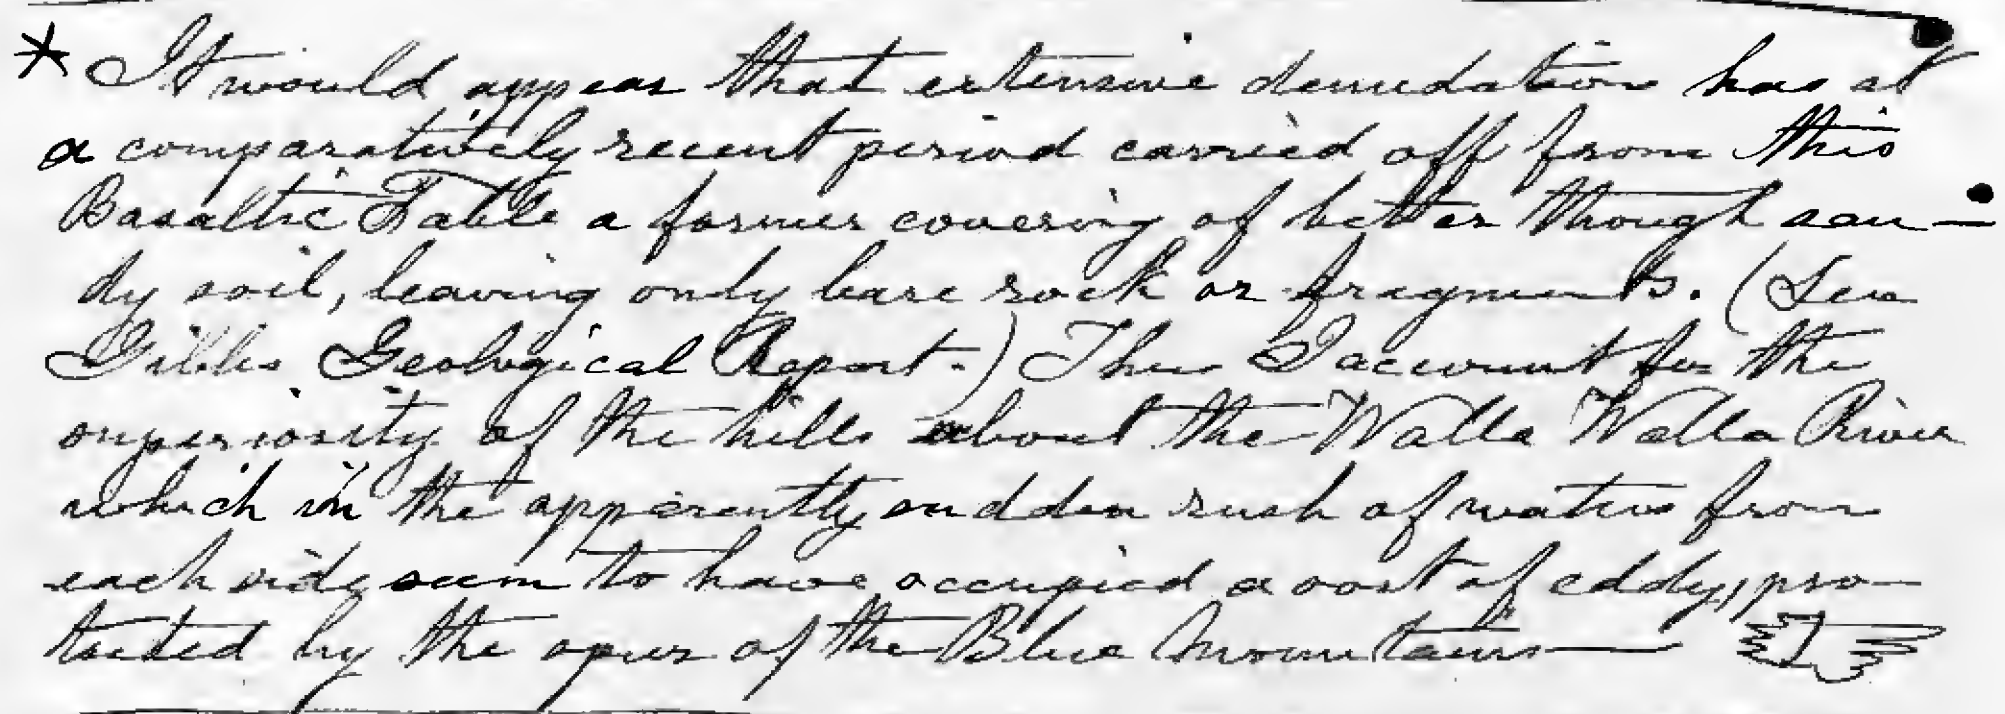 * It would appear that extensive denudation has at
a comparatively recent period carried off from this
Basaltic Table a former covering of better though san-
dy soil, leaving only bare rock or fragments. (See
Gibbs Geological Report.) Thus I account for the
superiority of the hills about the Walla Walla River
which in the apparently sudden rush of waters from
each side seem to have occupied a sort of eddy, pro-
tected by the spurs of the Blue Mountains—